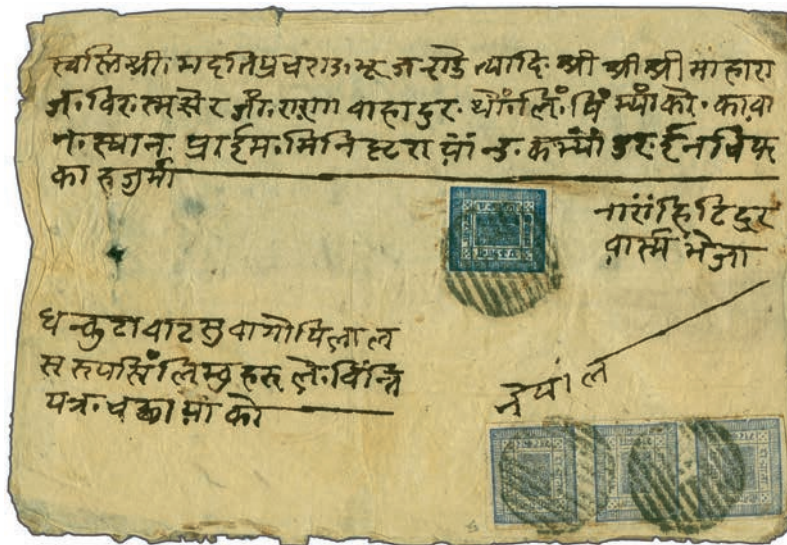 स्वस्तिश्री। मदतिप्रचराड भूजराडेत्यादि श्री श्री श्री माहारा
ज. विर. सम्सेर जंग. राणा वाहादुर. थों. लिं. पिं म्यां को. का वा
न. स्यान. प्राईम. मिनिष्टर यां न्ड. कम्यां डर. ईन चिफ्
का हजुरमा
नारांहिटि दुर
वारमा भेजा
धनकुटा वाट सुवा गोपिलाल
स रुपसिं लिम्वु हरुले. विंन्ति
पत्र. चढाया को
नेपाल